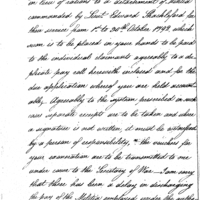 in lieu of rations to a detachment of Militia
commanded by Lieut. Edward Shackleford for
their service from 1st to 30th October 1793, which
sum is to be placed in your hands to be paid
to the individual claimants agreeably to a du-
plicate pay roll herewith enclosed and for the
due application whereof you are held accounta-
ble. Agreeably to the system prescribed in such
case separate receipts are to be taken and where
a signature is not written, it must be witnessed
by a person of responsibility, & the vouchers for
your exoneration are to be transmitted to me
under cover to the Secretary of War. I am sorry
that there has been a delay in discharging
the pay of the Militia employed under the